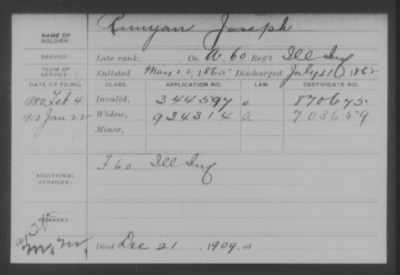 NAME OF SOLDIER: Runyan Joseph
SERVICE: Late rank, Co. A, 60 Reg't Ill Inf
TERM OF SERVICE: Enlisted 1865 Discharged July 31, 1865
DATE OF FILING. CLASS. APPLICATION NO. LAW. CERTIFICATE NO.
1880 Feb 4 Invalid, 344597
Jan 22 Widow, 934314 a 703659
Minor,
ADDITIONAL SERVICES: F 60 Ill Inf
REMARKS:
Died Dec 21 1909, at